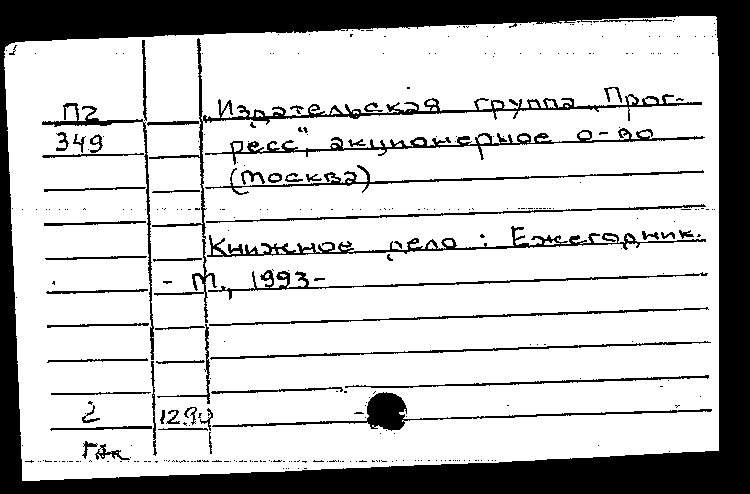 П2
349
„Издательская группа „Прог-
ресс", акционерное о-во
(Москва)
Книжное дело : Ежегодник.
- М., 1993-
2 1290